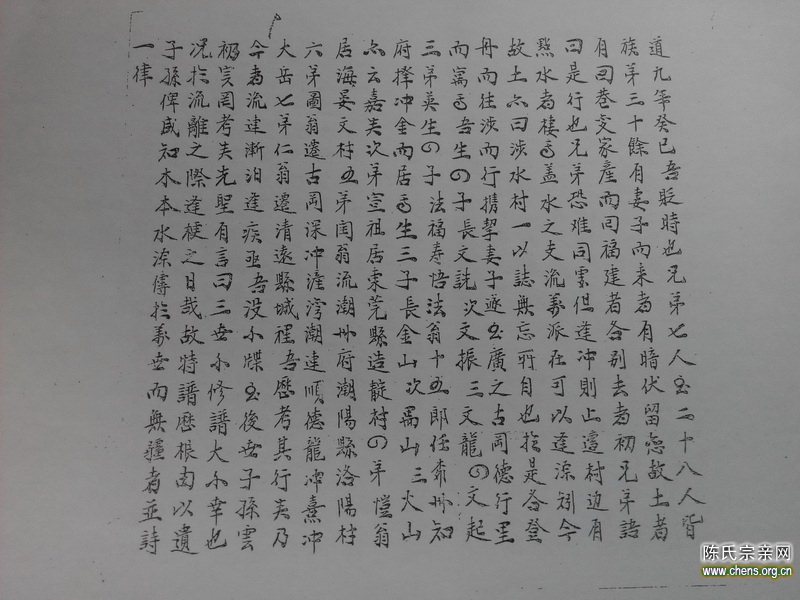 道九年癸巳吾貶時也兄弟七人至二十八人皆
族第三十餘有妻子而来者有暗伏留恋故土者
有曰巷支家產而同福建者各别去者初兄弟語
曰是行也兄弟恐难同但逢冲則止邊村边有
水者棲焉盖水之支流義派在可以逢源矧今
故土亦曰涉水村一以誌無忘所自也於是各登
舟而往涉而行携挈妻子逐出廣之古岡德行里
而寓焉吾生四子長文詵次文振三文龍四文起
三弟英生四子法福寿悟法翁十五郎任州知
府擇冲金而居焉生三子長金山次禺山三火山
云嘉夫次弟宣祖居東莞縣造靛村四弟愷翁
居海晏文村五弟閏翁流潮州府潮陽縣洛陽村
六弟圖翁遷古岡深冲湾潮連順德龍冲熹冲
大岳七弟仁翁遷清遠縣城裡吾歷考其行实乃
今者流連漸泊逢疾亟吾没小牒至後世子孫雲
礽寔罔考夫先聖有言曰三世不修譜大不幸也
况於流離之際逢梗之日哉故特譜歷根由以遺
子孫俾咸知木本水源傳於萬世而無疆者並詩
一律
陈氏宗亲网
www.chens.org.cn